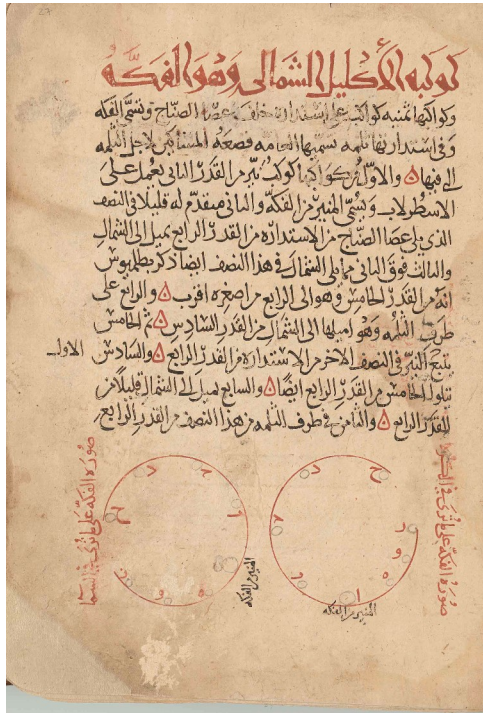 كوكبة الأكليل الشمالي وهو الفكه
وكواكبها ثمنيه كواكب على استداره خلف عصا الصناج وتسمى الفكه
وفي استدارتها ثلمه تسميها العامه قصعه المساكين لاجل الثلمه
التي فيها والاول من كواكبها كوكب نير من القدر الثاني يعمل على
الاسطرلاب ويسمى المنير من الفكه والثاني متقدم له قليلا في النصف
الذي يلي عصا الصناج من الاستداره من القدر الرابع يميل الى الشمال
والثالث فوق الثاني مما يلي الشمال في هذا النصف ايضا ذكر بطلميوس
انه من القدر الخامس وهو الى الرابع من اصغره اقرب والرابع على
طرف الثلمه وهو اميلها الى الشمال من القدر السادس ثم الخامس
يتبع النير في النصف الاخر من الاستداره من القدر الرابع والسادس
الاول
يتلو الخامس من القدر الرابع ايضا والسابع يميل الى الشمال قليلا من
القدر الرابع والثامن في طرف الثلمه من هذا النصف من القدر الرابع
صوره الفكه على ما ترى في الكره
صوره الفكه على ما ترى في السما
المنير من الفكه
المنير من الفكه